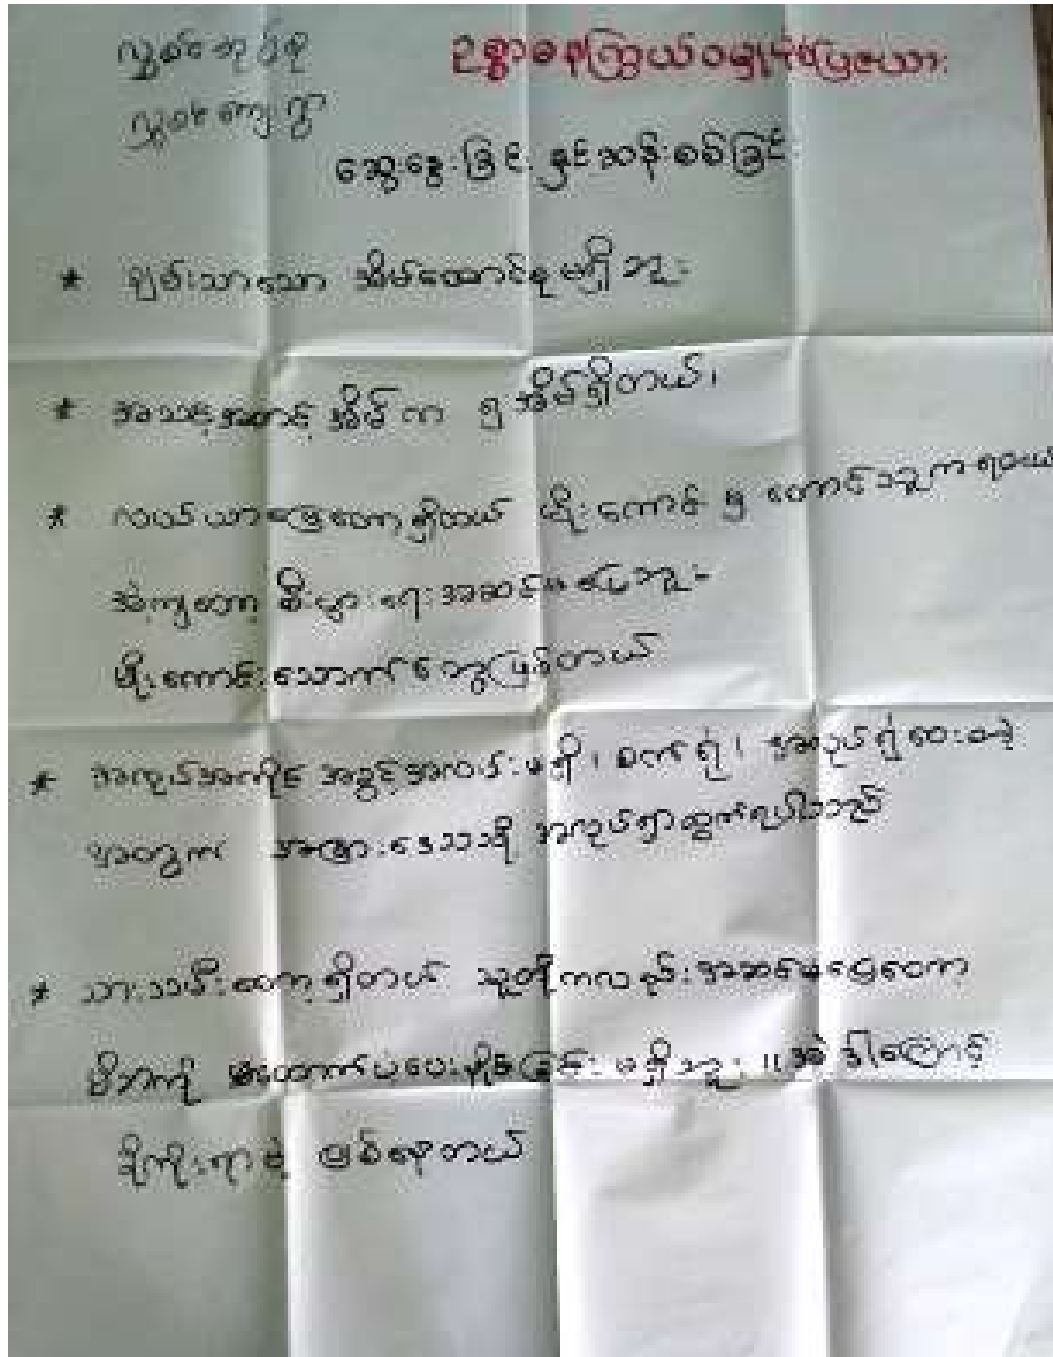 ဥစ္စာဓနကြွယ်ဝမှုပြဇယား
ဆွေးနွေးခြင်း နှင့်ဆန်းစစ်ခြင်း
* ချမ်းသာသော အိမ်ထောင်စု မရှိဘူး
* အသင့်အတင့် အိမ် က ၅ အိမ်ရှိတယ်၊
* လယ်ယာမြေတော့ရှိတယ် မိုးကောင်းမှ တောင်သူကရတယ်
အဲ့ကျတော့ စီးပွားရေးအဆင်မပြေဘူး
မိုးကောင်းသောက်တွေဖြစ်တယ်
* အလုပ်အကိုင် အခွင့်အလမ်းမရှိ၊ စက်ရုံ၊ အလုပ်ရုံဝေး
မှာတွက် အခြားဒေသသို့ အလုပ်ရှာထွက်ရပါသည်
* သားသမီးတော့ရှိတယ် သူတို့ကလည်းအဆင်မပြေတော့
မိဘကို ထောက်ပံ့ပေးနိုင်ခြင်း မရှိဘူး ။အဲ ဒါကြောင့်
ဖြစ်နေတယ်